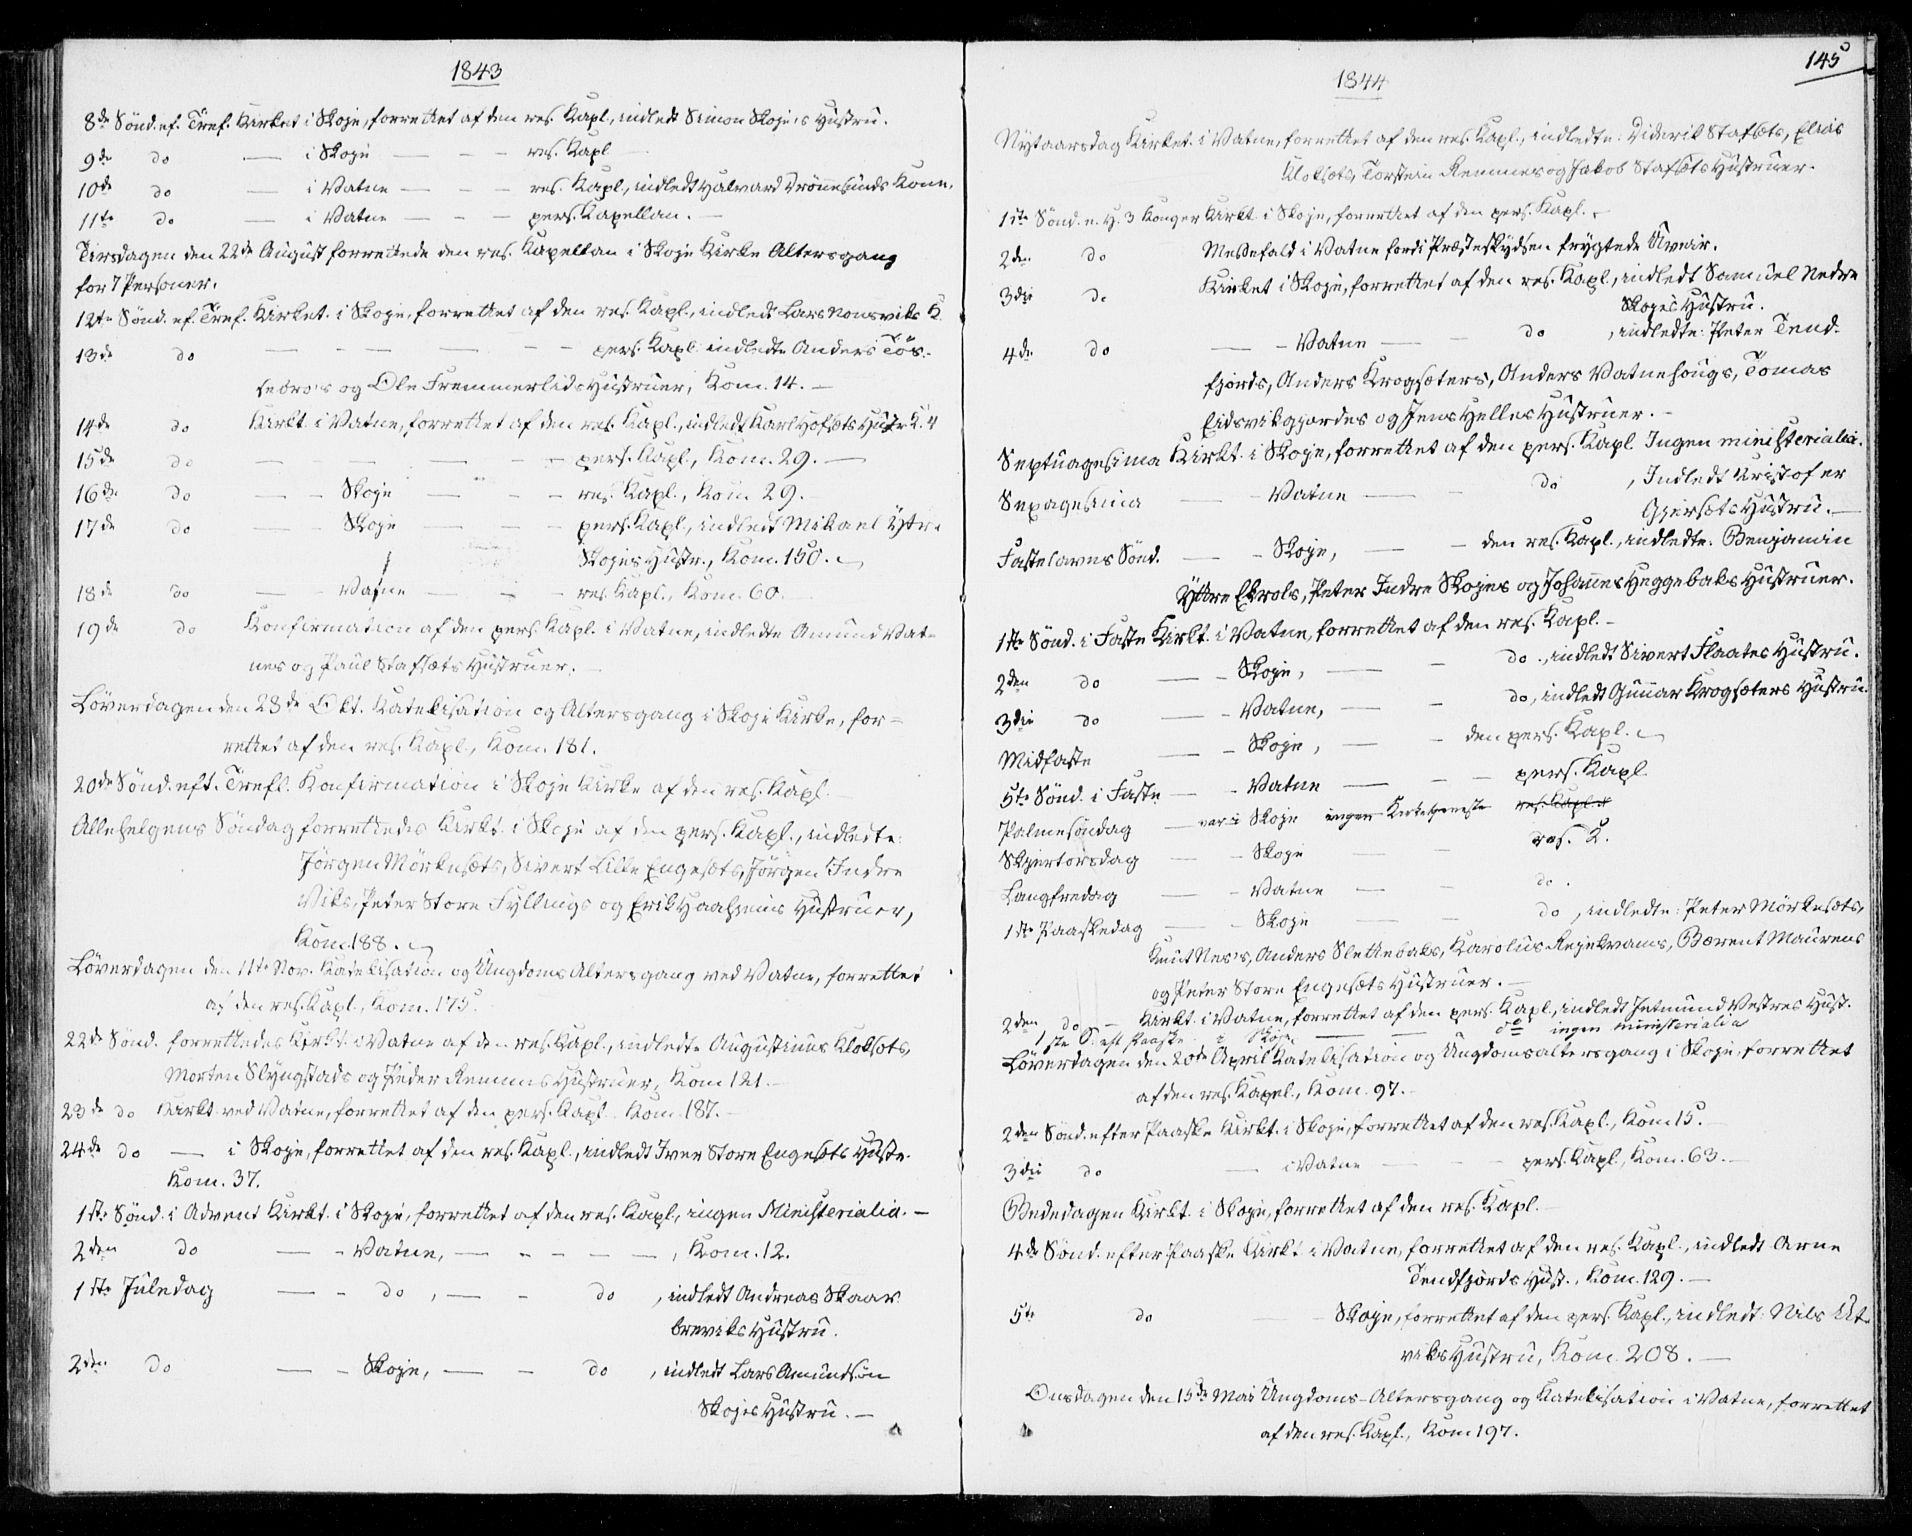 1843
8de Sönd. ef. Tref. Kirket i Skoje, forrettet af den res. Kapl., indledt Simon Skojes Hustru.
9de do — i Skoje — — — res. Kapl
10de do — i Vatne — — — res. Kapl., indledt Halvard Drönnesunds Kone.
11te do — i Vatne — — — pers. Kapellan. —
Tirsdagen den 22de August forrettede den res. Kapellan i Skoje Kirke Altersgang
for 7 Personer.
12te Sönd. ef. Tref. Kirket. i Skoje, forrettet af den res. Kapl., indledt Lars Nonsviks K.
13de do — — — — — — pers. Kapl. indledte Anders Tös-
sebro's og Ole Fremmerlids Hustruer, Kom. 14. —
14de do Kirkt. i Vatne, forrettet af den res. Kapl., indledt Karl Hofsæts Hustr. K. 4
15de do — — — — — — pers. Kapl., Kom. 29. —
16de do — — Skoje — — — res. Kapl., Kom 29.
17de do — — Skoje — — — pers. Kapl., indledt Mikael Ytre
Skojes Hustr., Kom. 150.
18de do — — Vatne — — — res. Kapl., Kom. 60.
19de do Konfirmation af den pers. Kapl. i Vatne, indledte Amund Vat-
nes og Paul Stafsæts Hustruer. —
Löverdagen den 28de Okt. Katekisation og Altersgang i Skoje Kirke, for-
rettet af den res. Kapl., Kom. 181.
20de Sönd. eft. Trefl. Konfirmation i Skoje Kirke af den res. Kapl. —
Allehelgens Söndag forrettedes Kirkt. i Skoje af den pers. Kapl., indledte:
Jörgen Mörkesæts, Sivert Lille Engesæts, Jörgen Indre
Viks, Peder Store Fyllings og Erik Haahjems Hustruer,
Kom. 188.
Löverdagen den 11te Nov. Katekisation og Ungdoms Altersgang ved Vatne, forrettet
af den res. Kapl., Kom. 175.
22de Sönd. forrettedes Kirkt. i Vatne af den res. Kapl., indledte Augustinus Kloksæts,
Morten Slyngstads og Peder Remmens Hustruer, Kom 121. —
23de do Kirkt. ved Vatne, forrettet af den pers. Kapl. Kom. 187. —
24de do — i Skoje, forrettet af den res. Kapl., indledt Iver Store Engesæts Hustr.
Kom. 37.
1ste Sönd. i Advent Kirkt. i Skoje, forrettet af den res. Kapl., ingen Ministerialia. —
2den do — — Vatne, — — — — —, Kom. 12.
1ste Juledag — — do, — — do, indledt Andreas Skaar-
breviks Hustru.
2den do — — Skoje, — — do, indledt Lars Amundsön
Skojes Hustru. —
145
1844
Nytaarsdag Kirket. i Vatne, forrettet af den res. Kapl., indledte: Diderik Stafsæts, Elias
Kloksæts, Torstein Remmens og Jakob Stafsæts Hustruer.
1ste Sönd. e. H. 3 Konger Kirkt. i Skoje, forrettet af den pers. Kapl. —
2den do Messefald i Vatne fordi Præsteskydsen frygtede Uveir.
3die do Kirket i Skoje, forrettet af den res. Kapl., indledt Samuel Nedre
Skojes Hustru.
4de do — — Vatne — — do, indledte: Peter Tend-
fjords, Anders Krogsæters, Anders Vatnehougs, Tomas
Eidsvikgjærdes og Jens Helles Hustruer. —
Septuagesima Kirkt. i Skoje, forrettet af den pers. Kapl. Ingen ministerialia.
Sexagesima — — Vatne — — do, Indledt Kristofer
Gjersæts Hustru. —
Fastelavns Sönd. — — Skoje, — — den res. Kapl., indledte: Benjamin
Yttre Ekrols, Peter Indre Skojes og Johannes Heggebaks Hustruer.
1ste Sönd. i Faste Kirkt. i Vatne, forrettet af den res. Kapl. —
2den do — — Skoje, — — do., indledt Sivert Flaates Hustru.
3die do — — Vatne, — — do, indledt Gunnar Krogsæters Hustru.
Midfaste — — Skoje, — — den pers. Kapl.
5te Sönd. i Faste — — Vatne — — — pers. Kapl.
Palmesöndag — var i Skoje ingen Kirketjeneste res. Kapl.
Skjertorsdag — — Skoje — — res. K.
Langfredag — — Vatne — — do.
1ste Paaskedag — — Skoje — — do, indledte: Peter Mörkesæts,
Knut Nes's, Anders Slettebaks, Karolus Rejekvams, Bærent Maurens
og Peter Store Engesæts Hustruer. —
2den do — Kirkt. i Vatne, forrettet af den pers. Kapl., indledt Jetmund Vestres Hust.
1ste S. eft. Paaske i Skoje — do ingen ministerialia
Löverdagen den 20de April Katekisation og Ungdomsaltersgang i Skoje, forrettet
af den res. Kapel., Kom. 97. —
2den Sönd. efter Paaske Kirkt. i Skoje, forrettet af den res. Kapl., Kom 15.
3die do — i Vatne — — pers. Kapl., Kom. 63. —
Bededagen Kirkt. i Skoje, forrettet af den res. Kapl. —
4de Sönd. efter Paaske Kirkt. i Vatne, forrettet af den res. Kapl., indledt Arne
Tendfjords Hust., Kom. 129. —
5te do — — Skoje, forrettet af den pers. Kapl., indledt: Nils Ut-
viks Hustru, Kom. 208. —
Onsdagen den 15de Mai Ungdoms-Altersgang og Katekisation i Vatne, forrettet
af den res. Kapl., Kom 197.